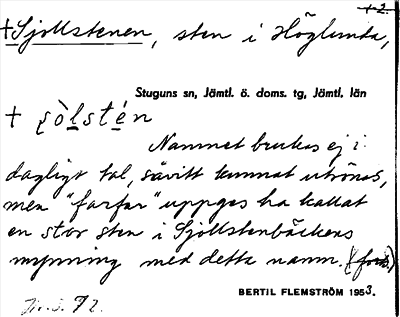 +2.
+Sjollstenen, sten i Höglunda,
Stuguns sn, Jämtl. ö. doms. tg, Jämtl. län
+ ʂòlstén
Namnet brukas ej i
dagligt tal, såvitt kunnat utrönas,
men "farfar" uppges ha kallat
en stor sten i Sjollstenbäckens
mynning med detta namn. (forts.)
BERTIL FLEMSTRÖM 1953.